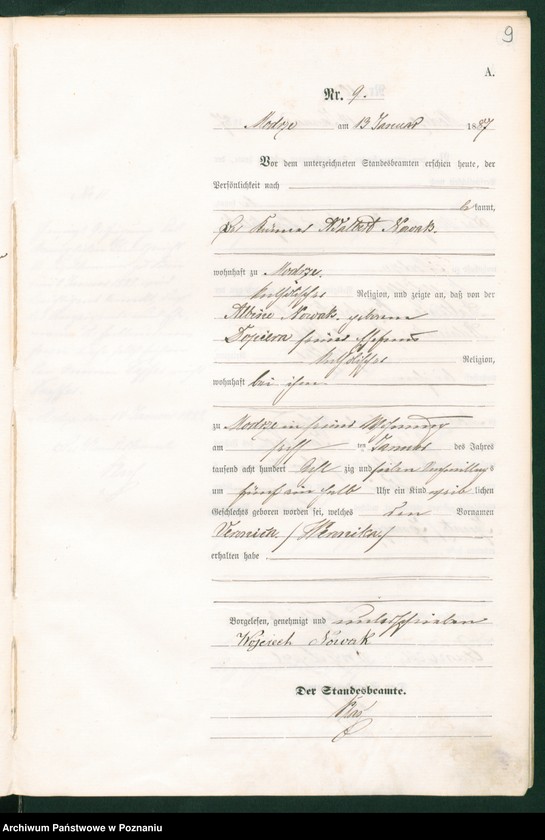 9
A.
Nr. 9.
Modrze am 13 Januar 1887
Vor dem unterzeichneten Standesbeamten erschien heute, der
Persönlichkeit nach
be kannt,
der Adalbert Nowak.
wohnhaft zu Modrze.
katholischer Religion, und zeigte an, daß von der
Albine Nowak geborene
Dopiera seiner Ehefrau
katholischer Religion,
wohnhaft bei ihm
zu Modrze in seiner Wohnung
am ten Januar des Jahres
tausend acht hundert acht zig und sieben Nachmittags
um fünf ein halb Uhr ein Kind weib lichen
Geschlechts geboren worden sei, welches den Vornamen
erhalten habe
Vorgelesen, genehmigt und unterschrieben
Wojciech Nowak
Der Standesbeamte.
Archiwum Państwowe w Poznaniu